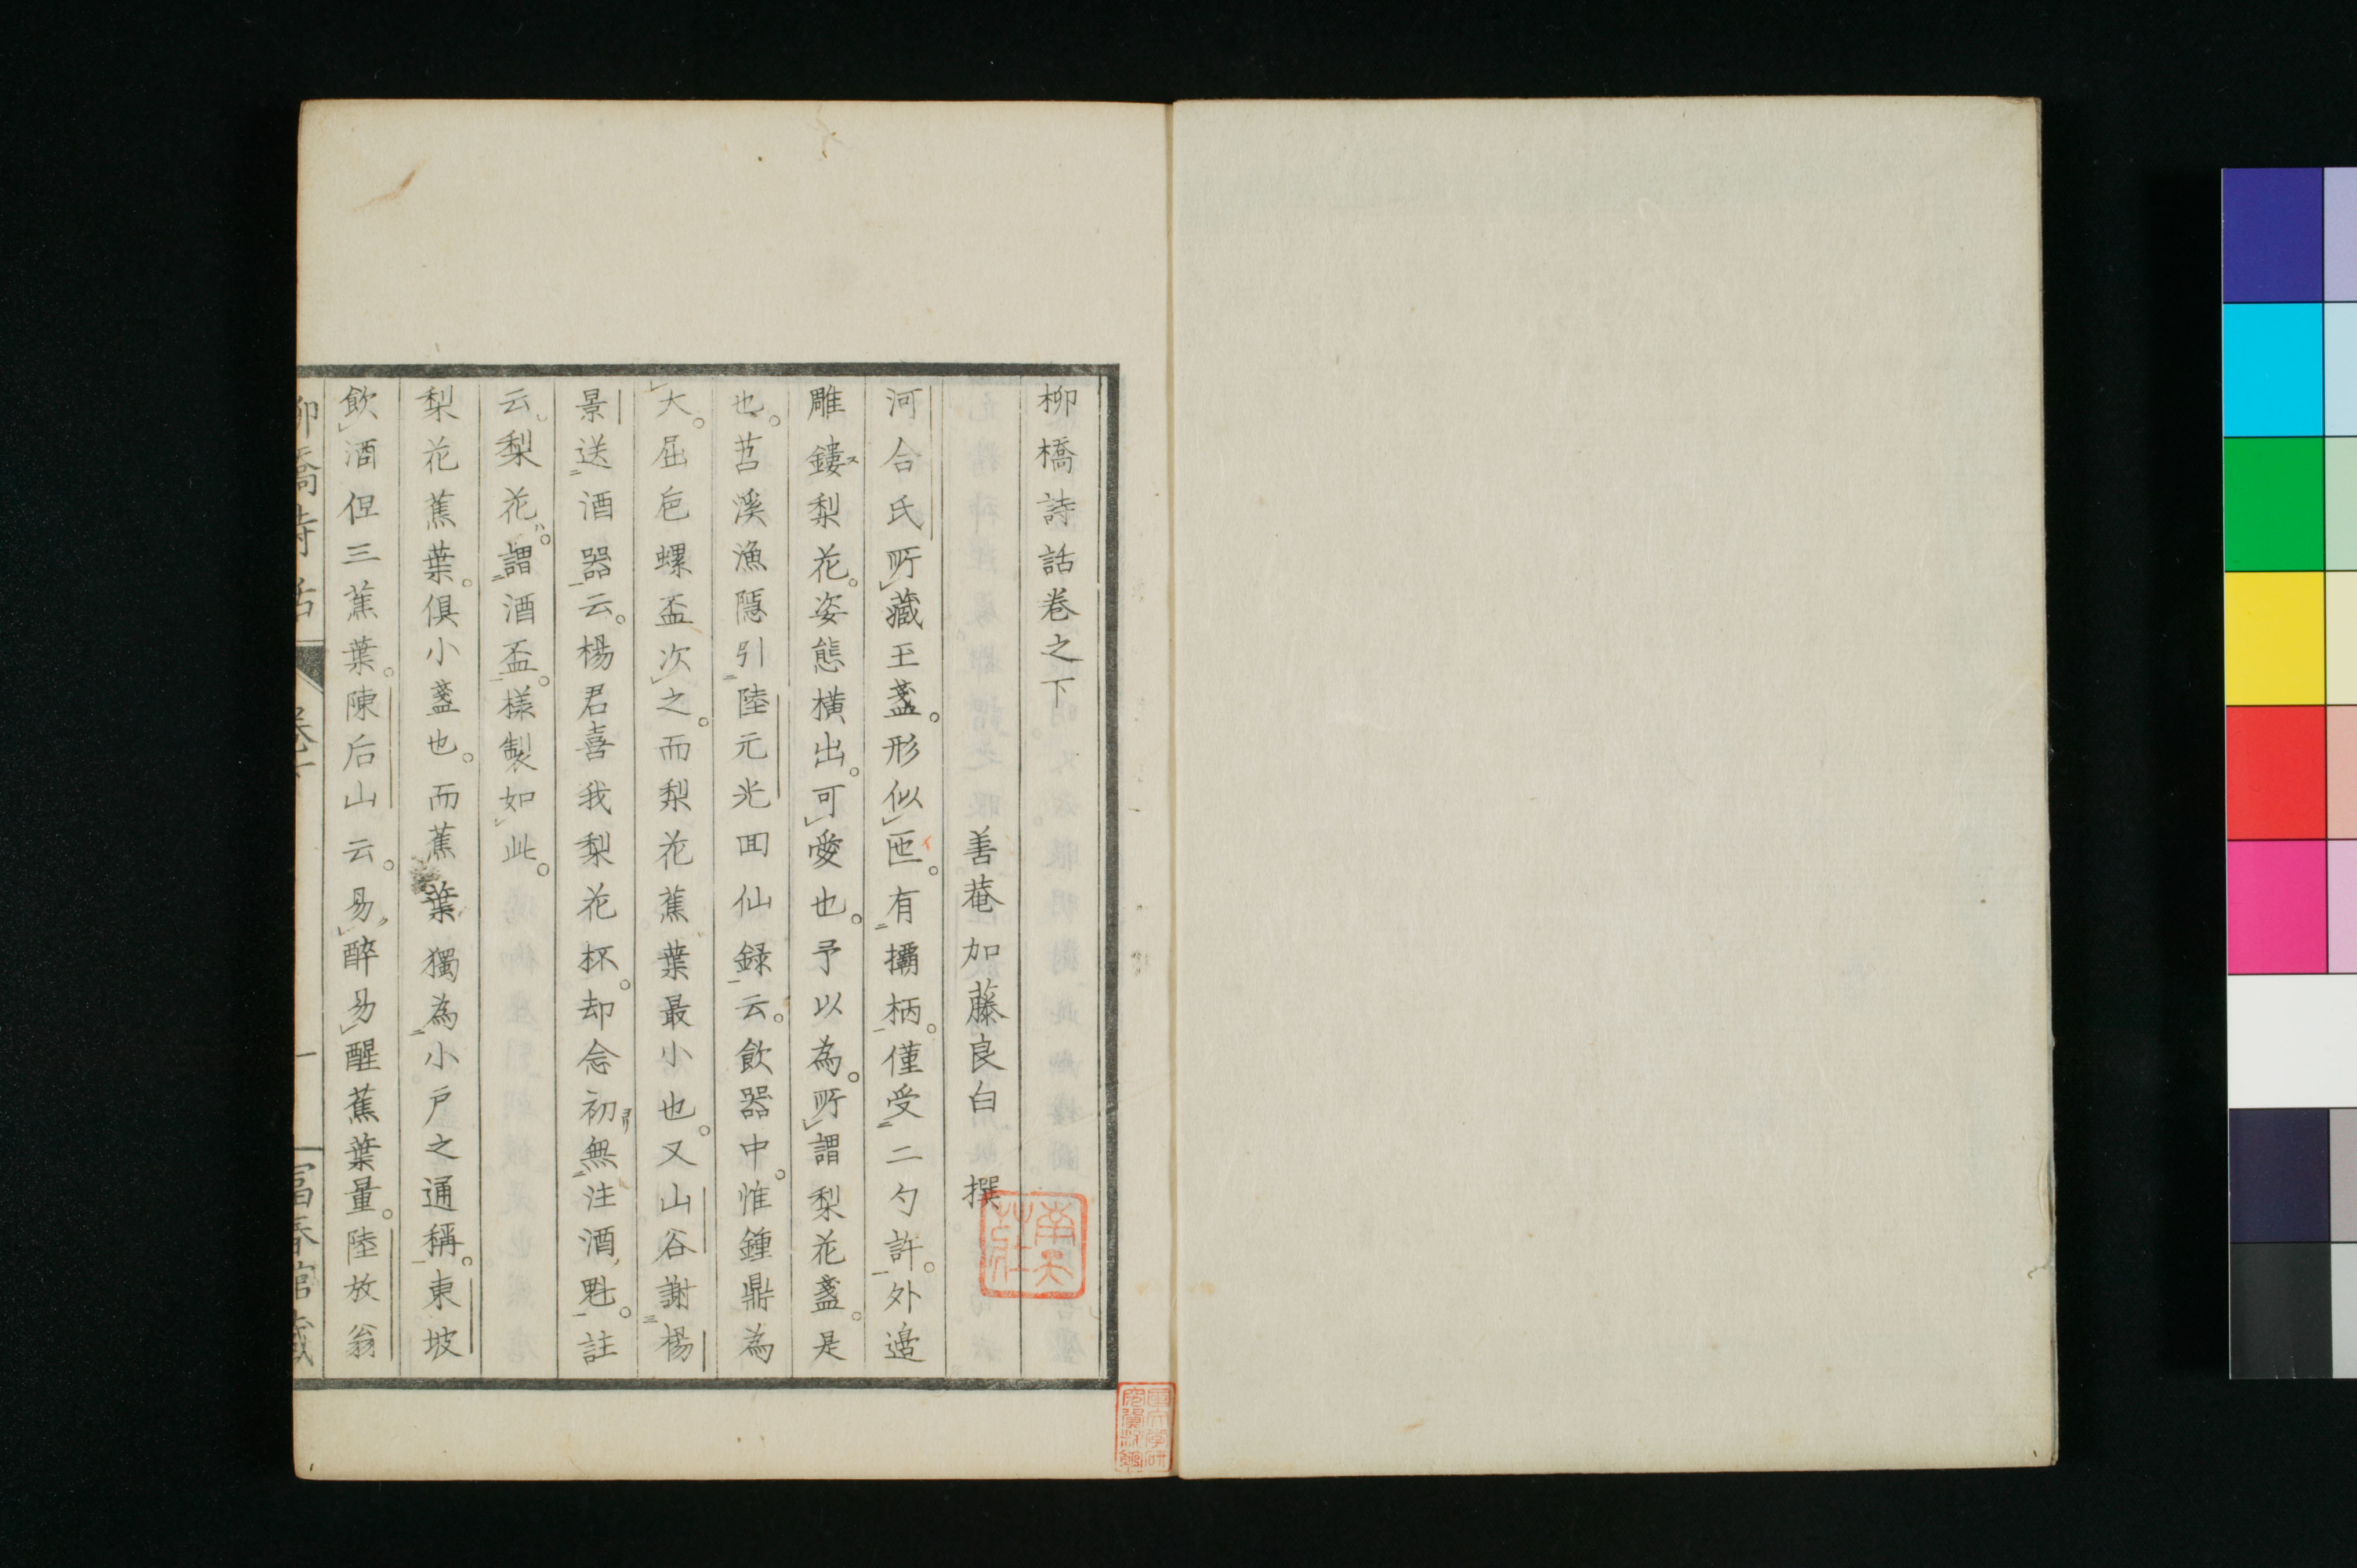 柳橋詩話卷之下
善菴加藤良白 撰
河合氏所藏玉盞。形似匜。有攝柄。僅受二勺許。外邉
雕鏤ス梨花。姿態橫出。可愛也。予以為。所謂梨花盞。是
也。苕溪漁隱引陸元光回仙録云。飲器中。惟鍾鼎為
大。屈巵螺盃次之。而梨花蕉葉最小也。又山谷謝楊
景送酒器云。楊君喜我梨花杯。却念初無注酒魁。註
云。梨花。謂酒盃。樣製如此。
梨花蕉葉。俱小盞也。而蕉葉獨為小戸之通稱。東坡
飲酒但三蕉葉。陳后山云。易醉易醒蕉葉量。陸放翁
柳橋詩話 卷下 一 富春館藏